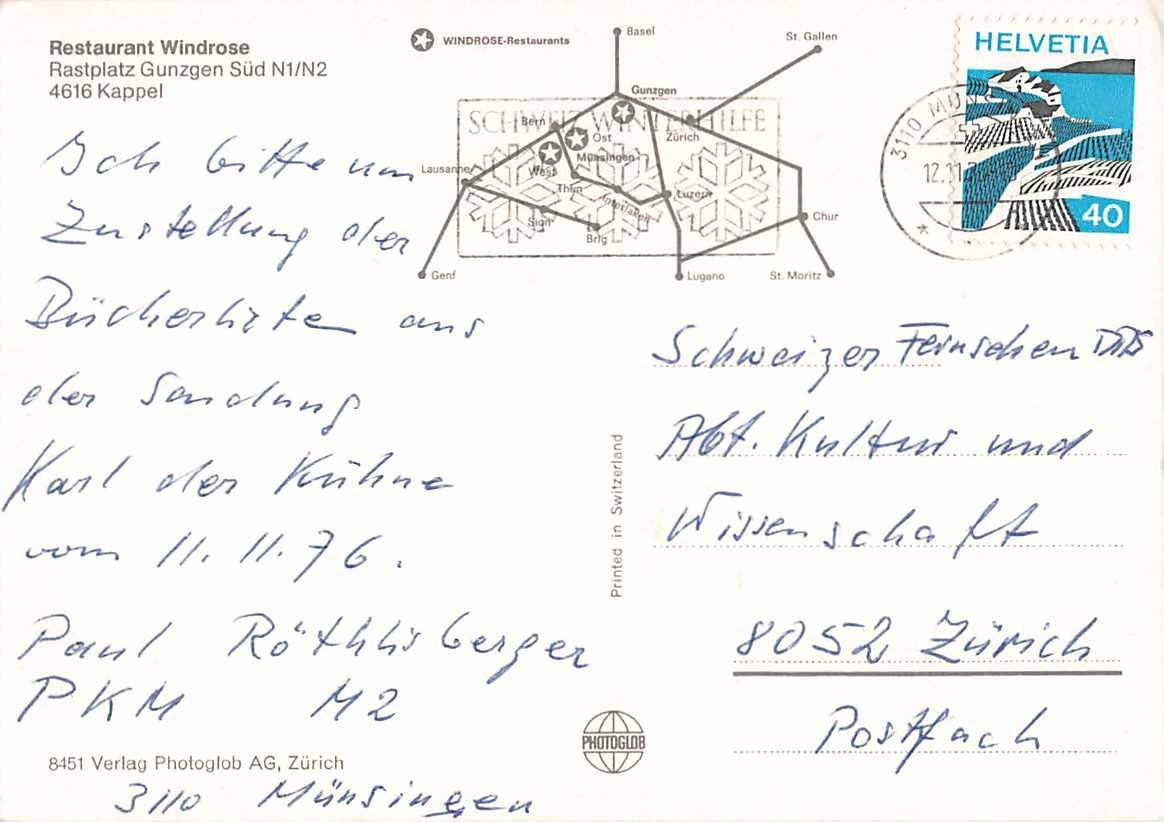 Restaurant Windrose
Rastplatz Gunzgen Süd N1/N2
4616 Kappel
WINDROSE-Restaurants
Basel
St. Gallen
Gunzgen
Bern
Ost
Zürich
Münsingen
West
Lausanne
Thun
Interlaken
Luzern
Sion
Brig
Chur
Genf
Lugano
St. Moritz
SCHWEIZ WINTERHILFE
HELVETIA
40
3110 MÜNS
12.11.7
Ich bitte um
Zustellung der
Bücherlisten aus
der Sendung
Karl der Kühne
vom 11.11.76.
Paul Röthlisberger
PKM M2
8451 Verlag Photoglob AG, Zürich
3110 Münsingen
Printed in Switzerland
PHOTOGLOB
Schweizer Fernsehen DRS
Abt. Kultur und
Wissenschaft
8052 Zürich
Postfach